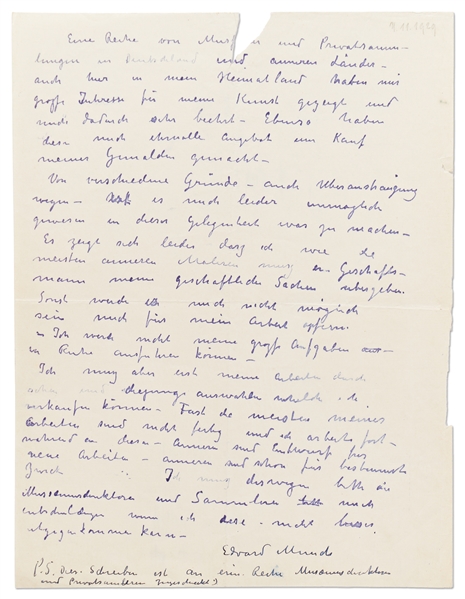 9.11.1929
Eine Reihe von und Privatsamm-
lungen in Deutschland und anneren Länder-
auch hier in mein Heimatland haben mir
große Interesse für meine Kunst gezeigt und
mich dadurch sehr beehrt- Ebenso haben
diese mich ehrvolle Angebot um Kauf
meines Gemälden gemacht-
Von verschiedene Gründe- auch Uberanstrengung
wegen- es mich leider unmöglich
gewesen in dieses Gelegenheit was zu machen-
Es zeigt sich leider dasz ich wie die
meisten anneren Mahren musz ein Geschäfts-
mann meine geschäftliche Sachen übergeben.
Sonst würde es mich nicht möglich
sein mich für mein Arbeit opfern
- Ich werde nicht meine große Aufgaben
in Ruhe ausführen können-
Ich musz aber erst meine Arbeiten
und auswahlen welche ich
verkaufen können- Fast die meisten meines
Arbeiten sind nicht fertig und ich arbeite fort-
während an diese- annere sind Entwurf für
neue Arbeiten- anneren sind schon für bestimmte
Zweck Ich musz deswegen bitte die
Museumsdirektoren und Sammleren mich
entschuldigen wenn ich diese nicht
entgegenkomme kann-
Edvard Munch
P.S. Dies Schreiben ist an eine Reihe Museumsdirektoren
und Privatsamleren zugeschickt)